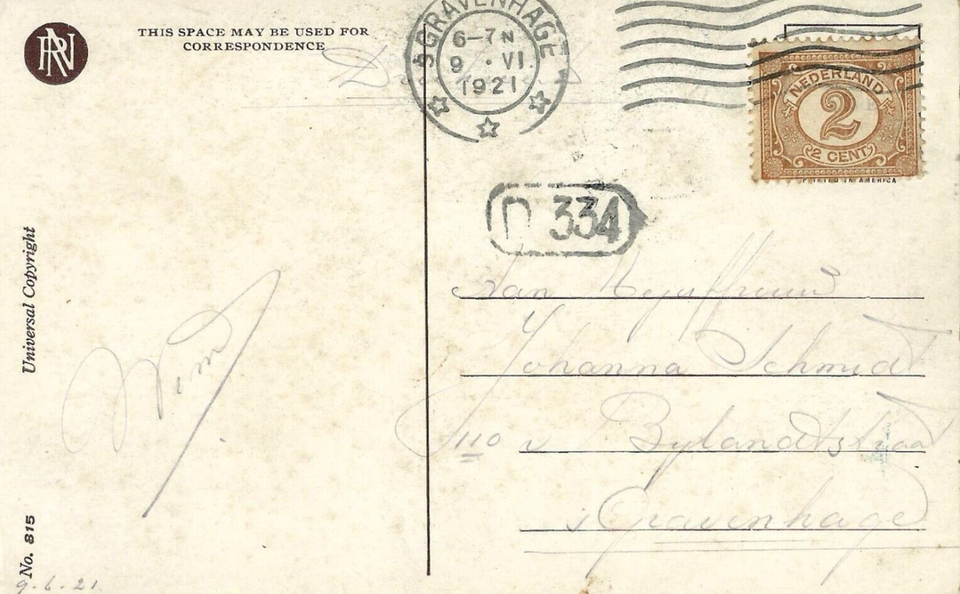 THIS SPACE MAY BE USED FOR
CORRESPONDENCE
'SGRAVENHAGE
6-7N
9 · VI
1921
NEDERLAND
2
2 CENT
PRINTED IN AMERICA
D 334
Universal Copyright
Wim
Aan Mejuffrouw
Johanna Schmidt
110 v Bylandtstraat
's Gravenhage
No. 815
9.6.21.